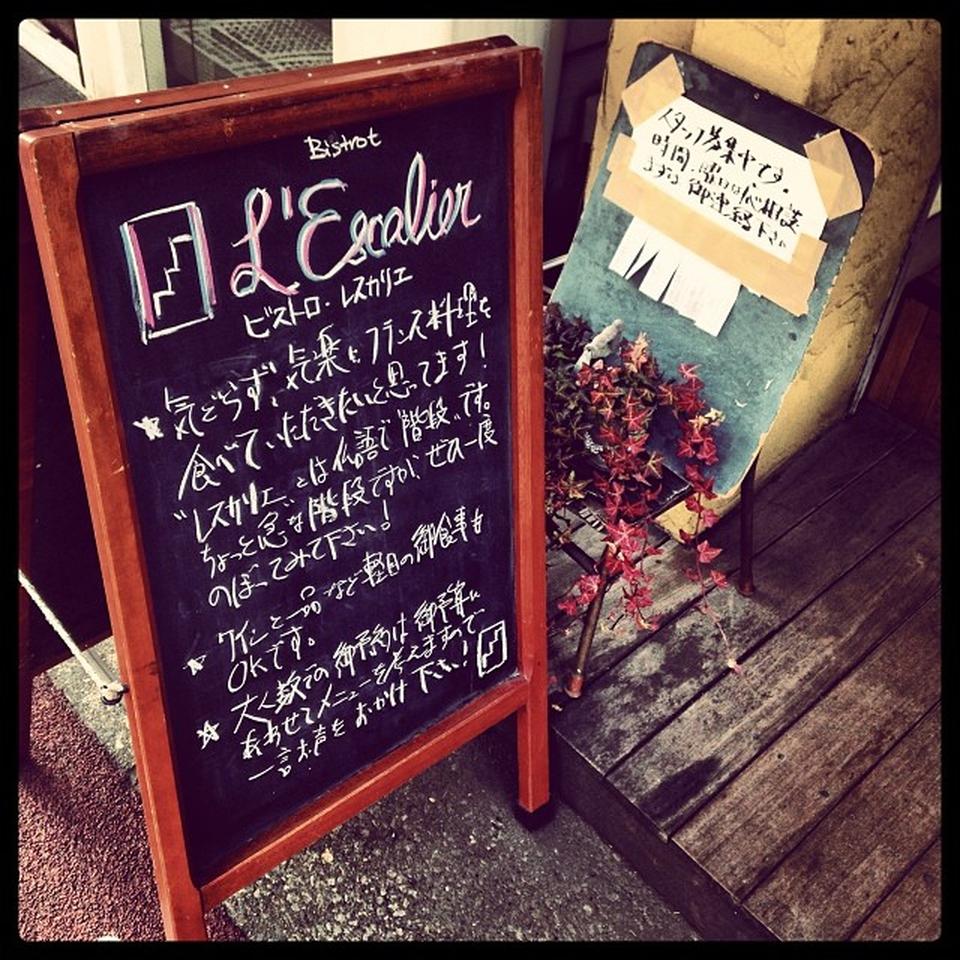 Bistrot
L'Escalier
ビストロ・レスカリエ
☆気どらず、気楽にフランス料理を
食べていただきたいと思てます!
"レスカリエ"とは仏語で"階段"です。
ちょっと急な階段ですが ぜひ一度
のぼってみて下さい!
☆ワインと一品など軽目の御食事も
OKです。
☆大人数での御予約は御予算に
あわせてメニューを考えますので
一言お声をおかけ下さい!
スタッフ募集中です。
時間、曜日は応相談
まずは御連絡下さい